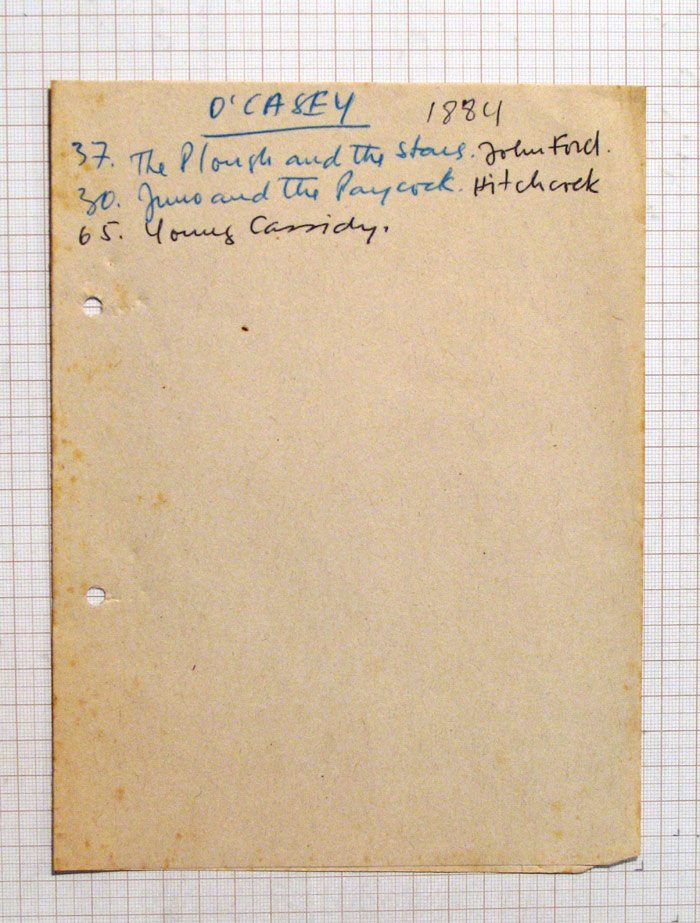 O'CASEY 1884
37. The Plough and the Stars. John Ford.
30. Juno and the Paycock. Hitchcock
65. Young Cassidy.